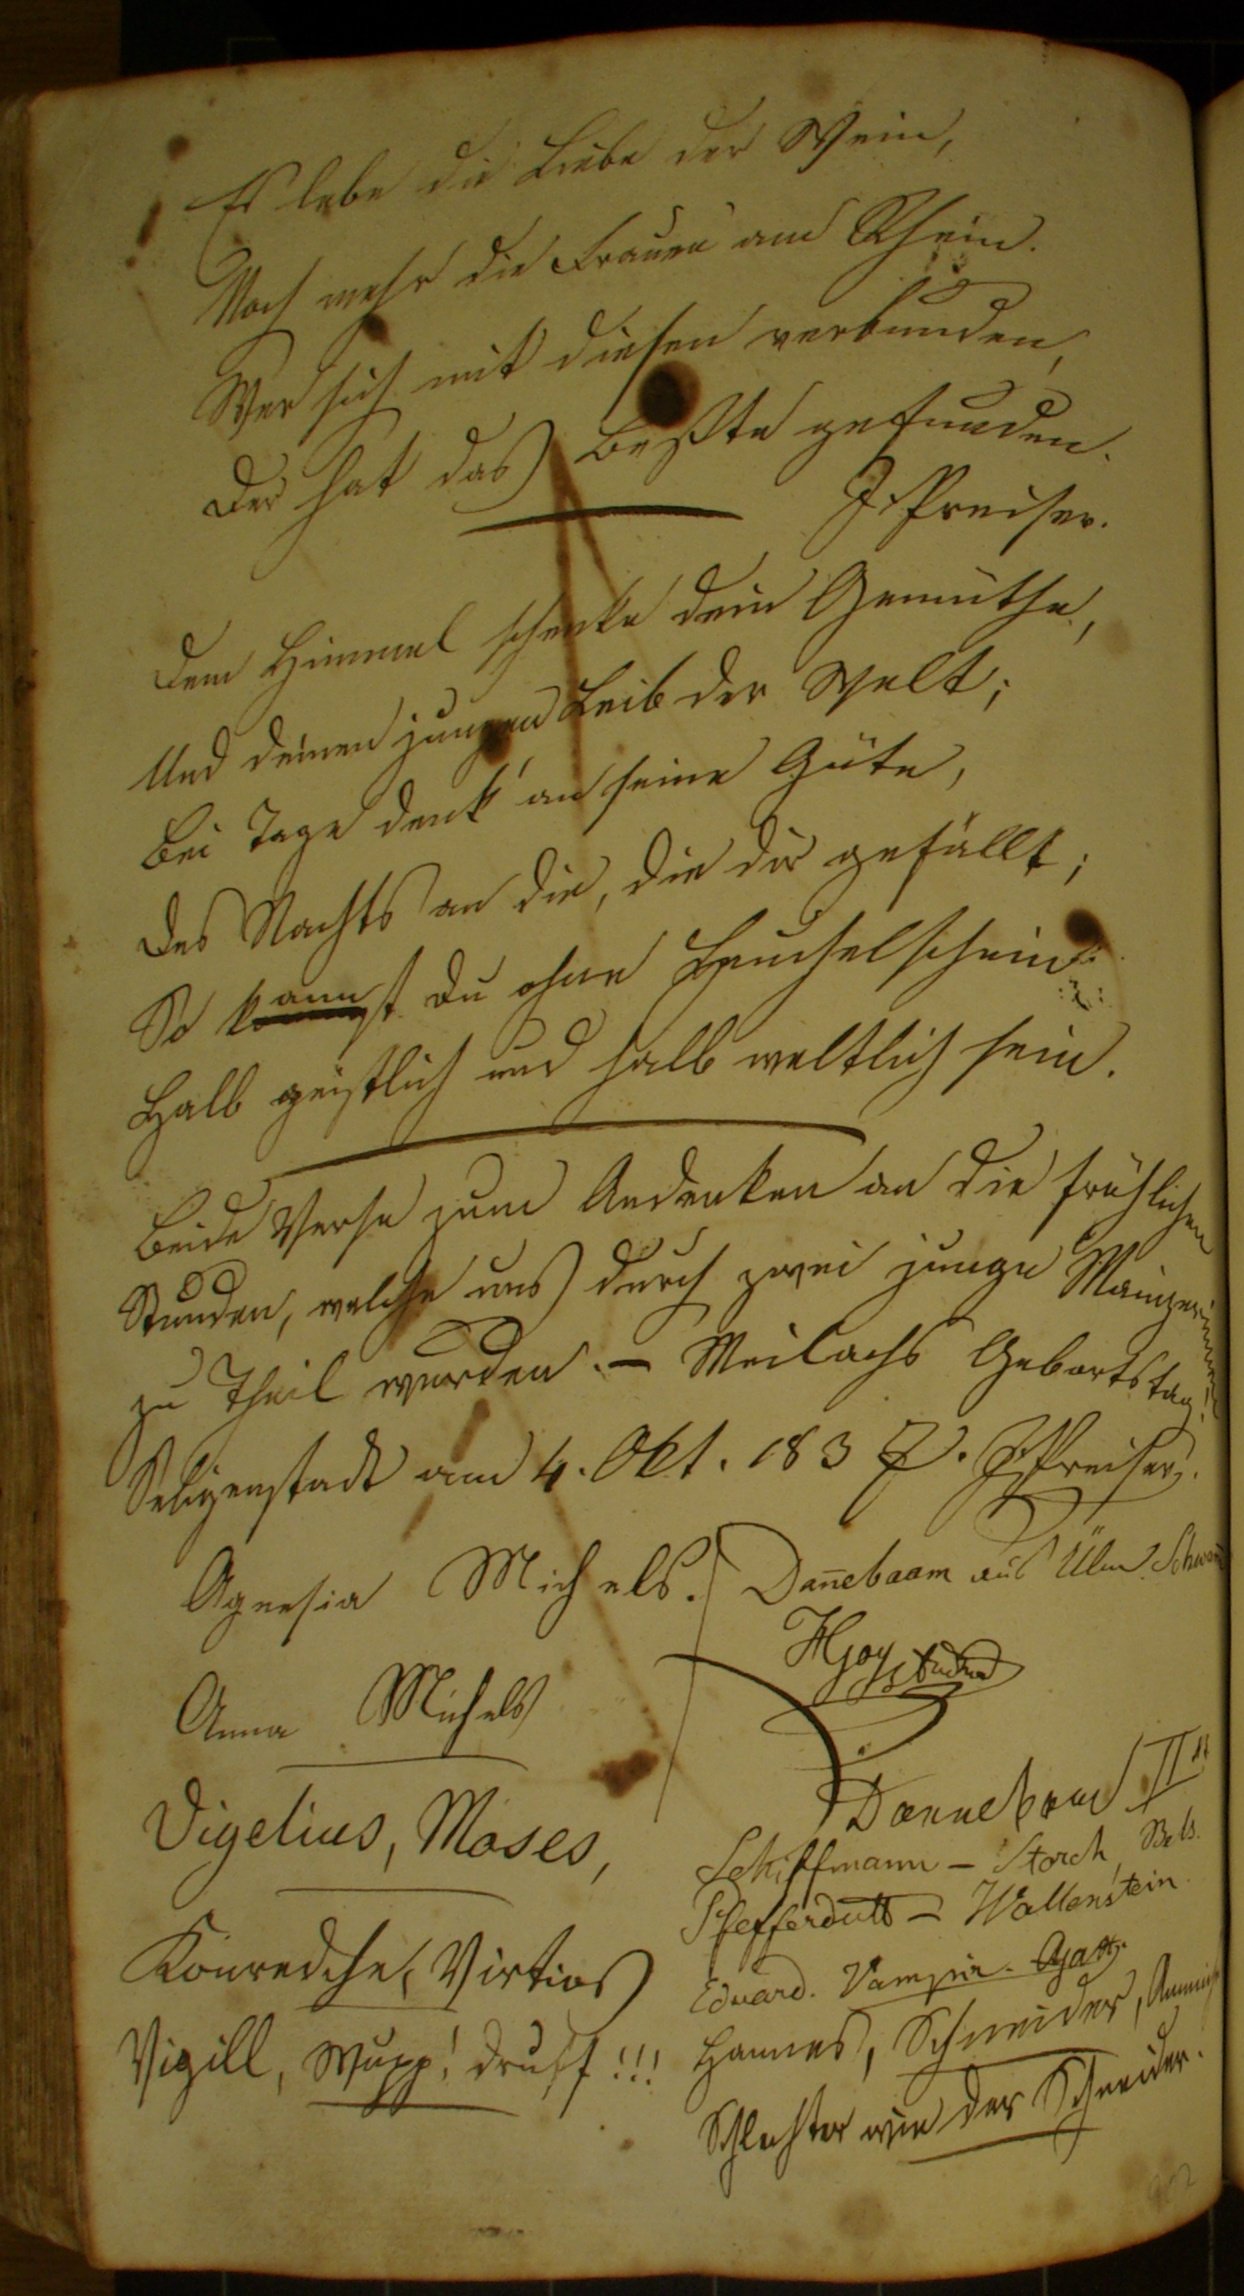 Es lebe die Liebe der Wein,
Noch mehr die Frauen am Rhein.
Wer sich mit diesen verbunden,
Der hat das Beßte gefunden.
J. Preiser.
Dem Himmel schenke dein Gemüthe,
Und deinen jungen Leib der Welt;
Bei Tage denk' an seine Güte,
Des Nachts an die, die dir gefällt;
So kannst du ohne Heuchelschein
Halb geistlich und halb weltlich sein.
Beide Verse zum Andenken an die fröhlichen
Stunden, welche uns durch zwei junge Mainzerinnen
zu Theil wurden. – Meilachs Geburtstag.
Seligenstadt am 4. Okt. 1837. J. Preiser.
Agnesia Michels.
Anna Michels
Vigelius, Moses,
Konredche, Virtios
Vigill, Wupp! druff!!!
Dañebaam aus Ulm
Dannebaam II
Schiffmann – Storch, Bels.
Pfefferdutt – Wallenstein.
Eduard. Vampir.
Hannes, Schneider,
Schlechter wie der Schneider.